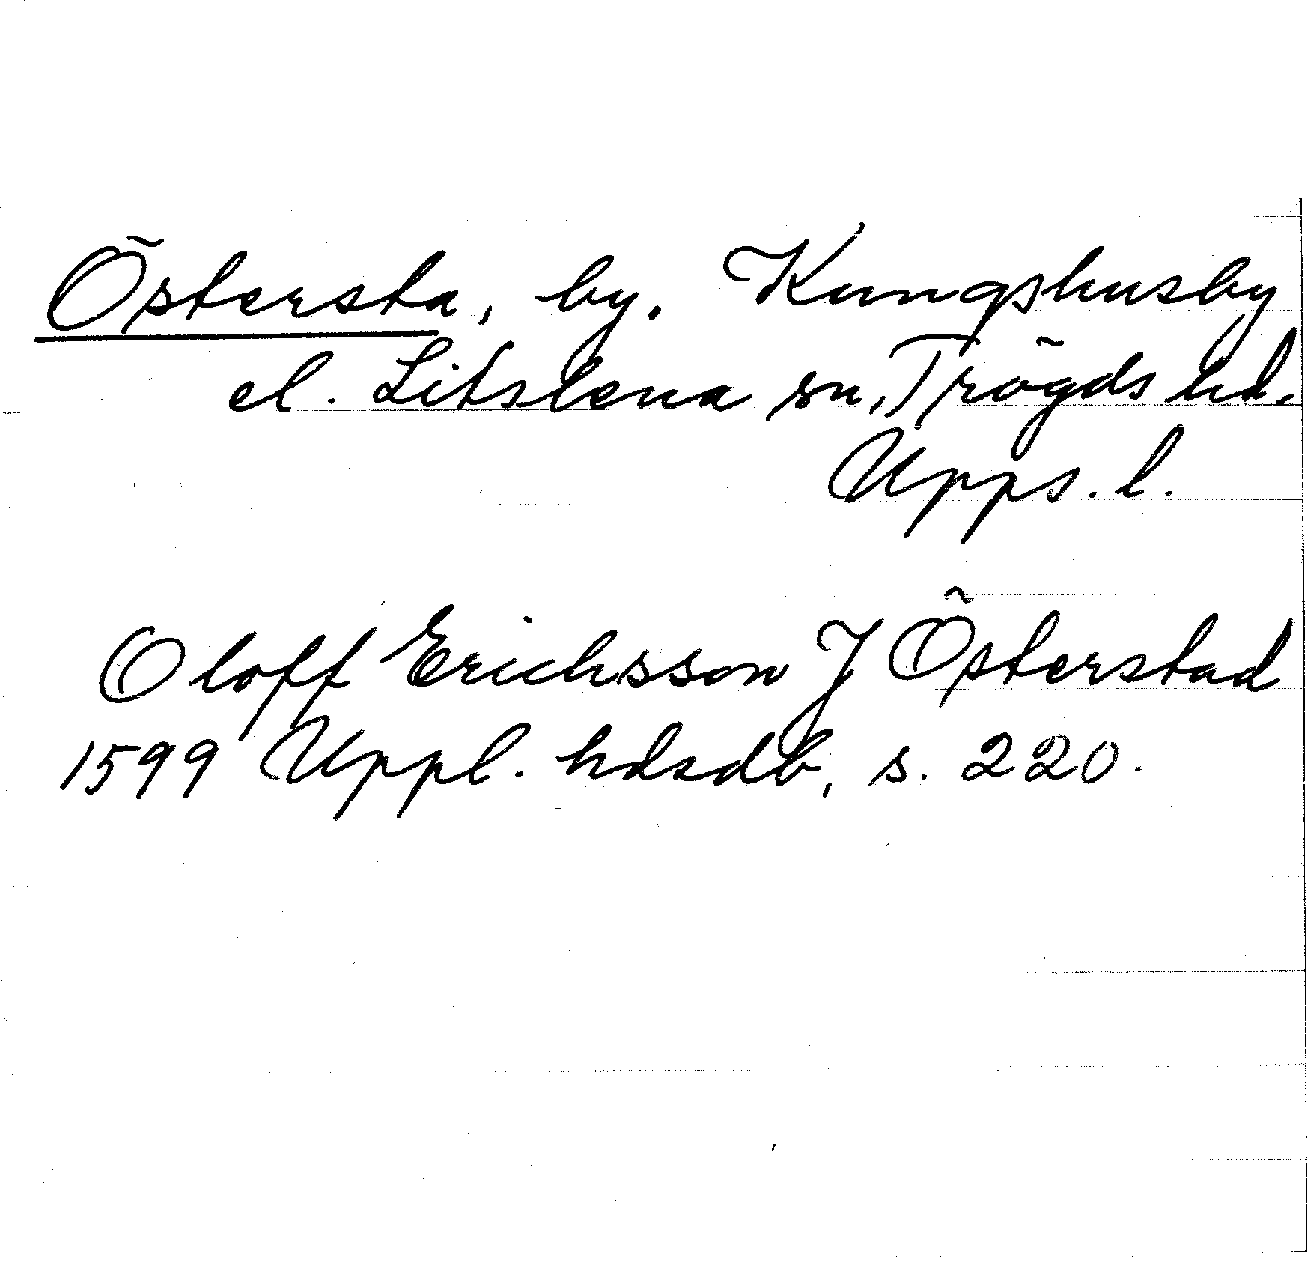 Östersta, by. Kungshusby
el. Litslena sn, Trögds hd.
Upps. l.
Oloff Erichsson J Österstad
1599 Uppl. hdsdb, s. 220.